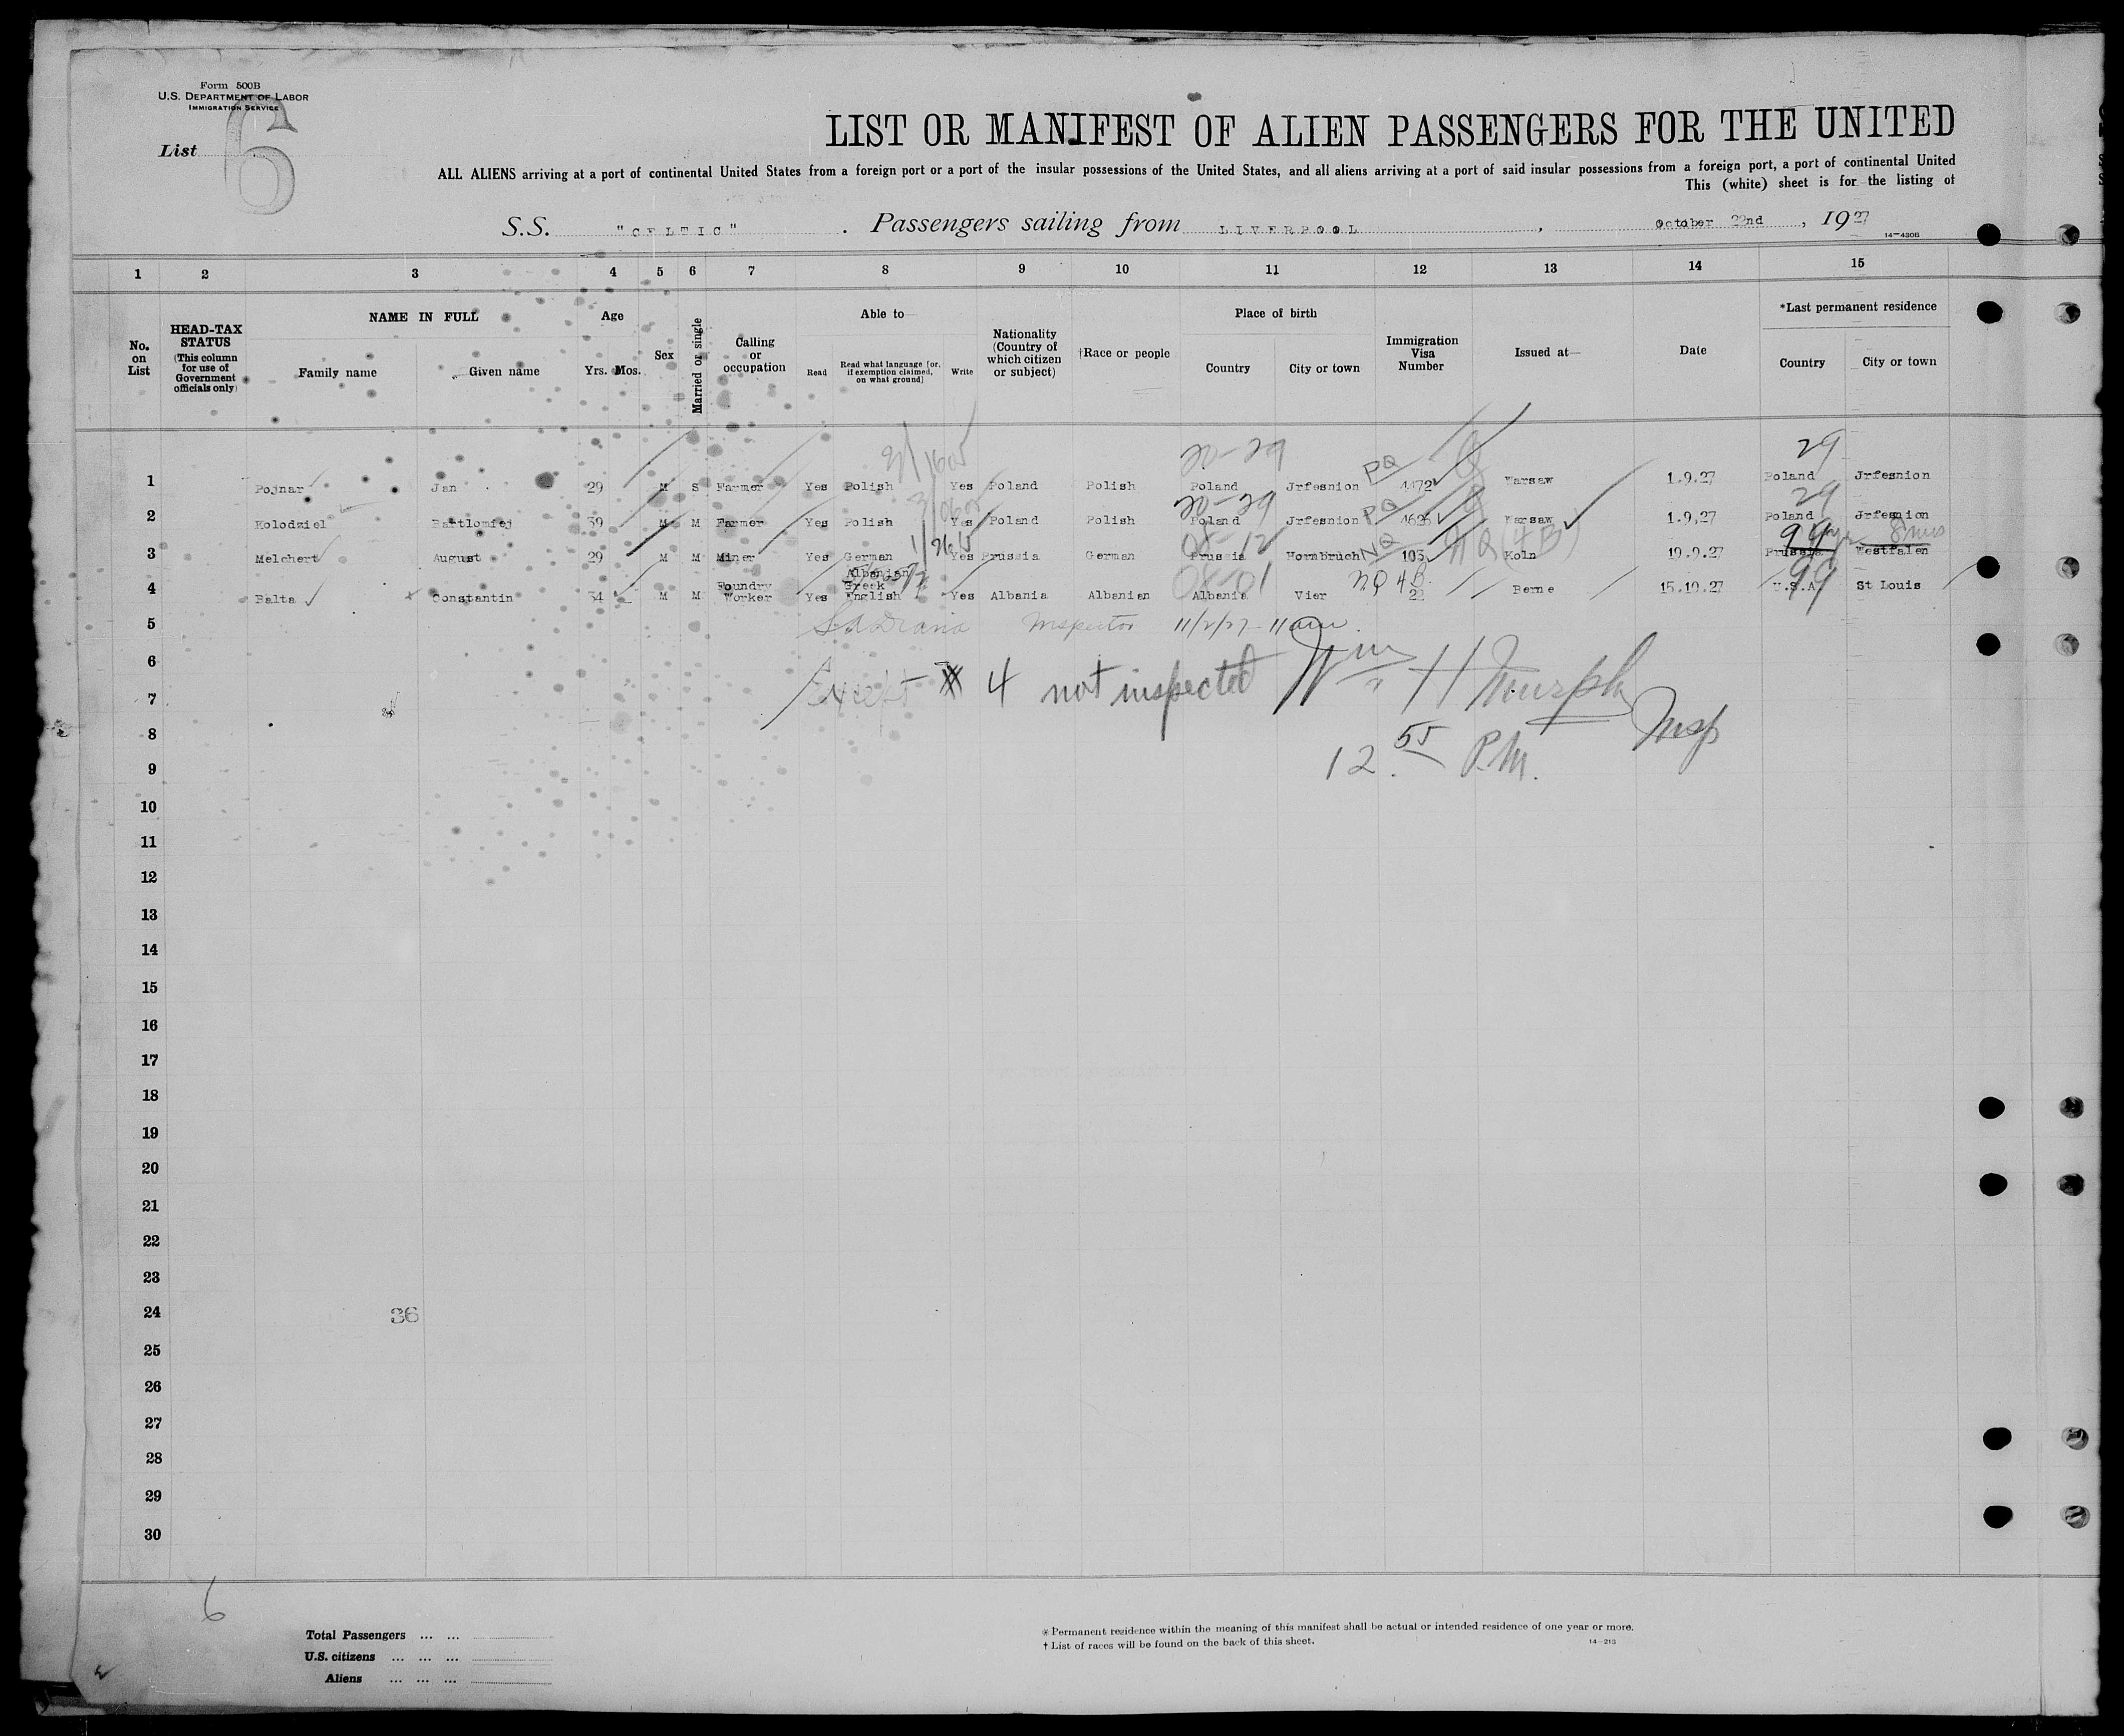 Form 500B
U.S. DEPARTMENT OF LABOR
IMMIGRATION SERVICE
List 6
LIST OR MANIFEST OF ALIEN PASSENGERS FOR THE UNITED
ALL ALIENS arriving at a port of continental United States from a foreign port or a port of the insular possessions of the United States, and all aliens arriving at a port of said insular possessions from a foreign port, a port of continental United
This (white) sheet is for the listing of
S.S. "CELTIC". Passengers sailing from LIVERPOOL, October 22nd, 1927
14-430B
1 2 3 4 5 6 7 8 9 10 11 12 13 14 15
No. on List
HEAD-TAX STATUS (This column for use of Government officials only)
NAME IN FULL Family name Given name
Age Yrs. Mos.
Sex
Married or single
Calling or occupation
Able to— Read Read what language (or, if exemption claimed, on what ground) Write
Nationality (Country of which citizen or subject)
†Race or people
Place of birth Country City or town
Immigration Visa Number
Issued at—
Date
*Last permanent residence Country City or town
20-29 29
1 Pojnar Jan 29 M S Farmer Yes Polish Yes Poland Polish Poland Jrfesnion PQ 4472 Warsaw 1.9.27 Poland Jrfesnion
20-29 29
2 Kolodziel Bartlomiej 39 M M Farmer Yes Polish Yes Poland Polish Poland Jrfesnion PQ 4626 Warsaw 1.9.27 Poland Jrfesnion
08-12 NQ (4B) 99 8 mos
3 Melchert August 29 M M Miner Yes German Yes Prussia German Prussia Hombruch NQ 103 Koln 19.9.27 Prussia Westfalen
08-01 NQ 4B 99
4 Balta Constantin 34 M M Foundry Worker Yes Albanian Greek English Yes Albania Albanian Albania Vier 22 Berne 15.10.27 U.S.A. St Louis
5 Inspector 11/2/27 - 11 am
6 Except # 4 not inspected Wm H Murphy
7 Insp
8 12.55 P.M.
9
10
11
12
13
14
15
16
17
18
19
20
21
22
23
24 36
25
26
27
28
29
30
6
Total Passengers ... ...
U.S. citizens ... ... ...
Aliens ... ... ...
* Permanent residence within the meaning of this manifest shall be actual or intended residence of one year or more.
† List of races will be found on the back of this sheet.
14-213